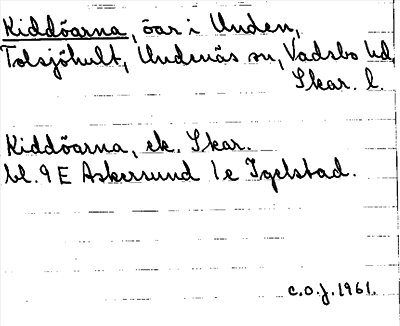 Kiddöarna, öar i Unden,
Tolsjöhult, Undenäs sn, Vadsbo hd,
Skar. l.
Kiddöarna, ek. Skar.
bl. 9 E Askersund 1e Igelstad.
c.o.j. 1961.